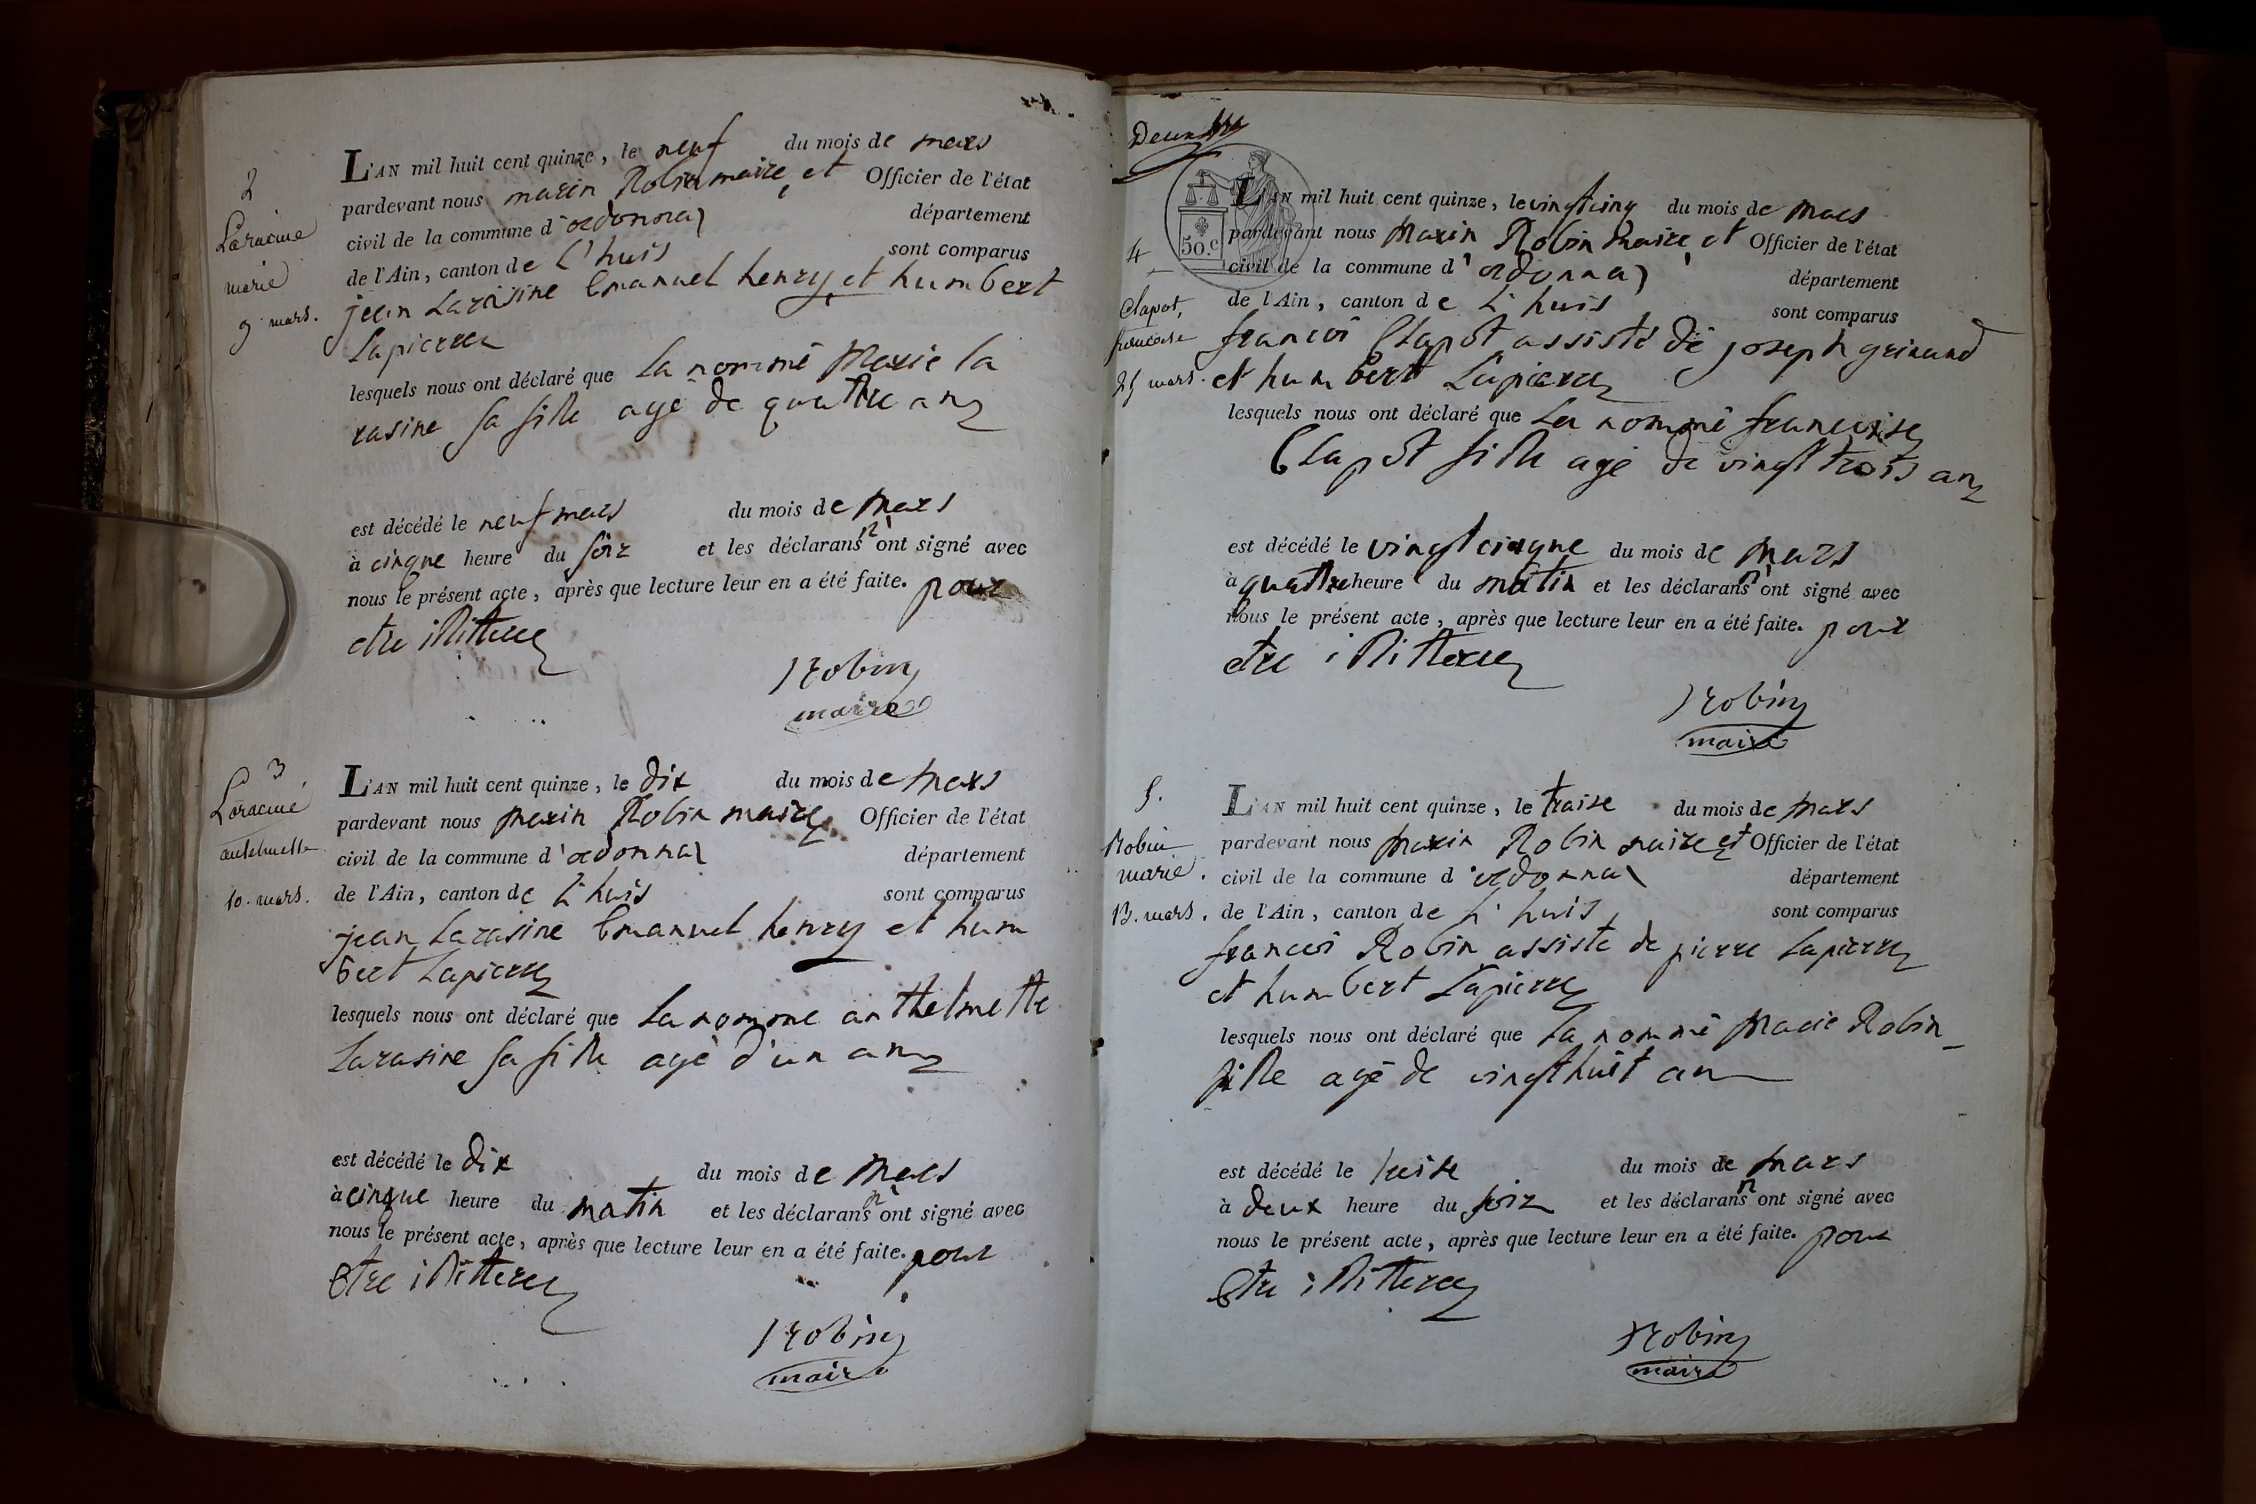 2
Laracine
marie
9 mars.
L'AN mil huit cent quinze, le neuf du mois de mars
pardevant nous marin Robin maire, et Officier de l'état
civil de la commune d'ordonnaz département
de l'Ain, canton de l'huis sont comparus
jean Larasine Emanuel henry et humbert
Lapierre
lesquels nous ont déclaré que la nommé Marie la
rasine sa fille agé de quattre anz
est décédé le neuf mars du mois de Mars
à cinque heure du soir et les déclarans n'ont signé avec
nous le présent acte, après que lecture leur en a été faite. pour
etre illitteré
Robin
maire
3
Laracine
anthelmette
10. mars.
L'AN mil huit cent quinze, le dix du mois de Mars
pardevant nous Marin Robin maire Officier de l'état
civil de la commune d'ordonnaz département
de l'Ain, canton de L'huis sont comparus
jean Larasine Emanuel henry et hum
bert Lapierre
lesquels nous ont déclaré que La nommé anthelmette
Larasine sa fille agé d'un anz
est décédé le dix du mois de Mars
à cinque heure du matin et les déclarans n'ont signé avec
nous le présent acte, après que lecture leur en a été faite. pour
Etre illitteré
Robin
maire
50.c
4
Clapot,
francoise
25 mars.
L'AN mil huit cent quinze, le vingtcinq du mois de Mars
pardevant nous Marin Robin Maire, et Officier de l'état
civil de la commune d'ordonnaz département
de l'Ain, canton de L'huis sont comparus
francoi Clapot assisté de joseph grinand
et humbert Lapierre
lesquels nous ont déclaré que La nommé francoise
Clapot fille agé de vingt trois anz
est décédé le vingtcinque du mois de Mars
à quattre heure du matin et les déclarans n'ont signé avec
nous le présent acte, après que lecture leur en a été faite. pour
etre illitteré
Robin
maire
5.
Robin
marie.
13. mars.
L'AN mil huit cent quinze, le traise du mois de Mars
pardevant nous Marin Robin maire et Officier de l'état
civil de la commune d'ordonnaz département
de l'Ain, canton de L'huis sont comparus
francoi Robin assisté de pierre Lapierre
et humbert Lapierre
lesquels nous ont déclaré que La nommé Marie Robin
fille agé de vingthuit an
est décédé le treise du mois de Mars
à deux heure du soir et les déclarans n'ont signé avec
nous le présent acte, après que lecture leur en a été faite. pour
Etre illitteré
Robin
maire